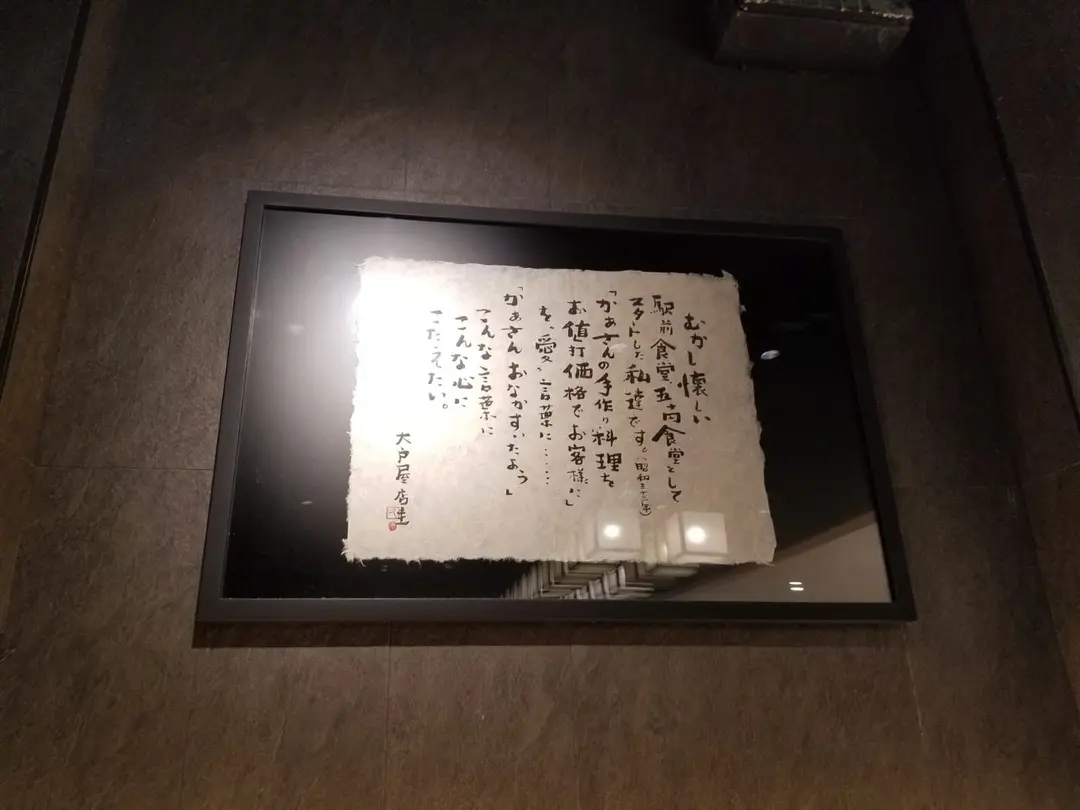 むかし懐しい
駅前食堂、五十円食堂として
スタートした私達です。（昭和三十三年）
「かあさんの手作り料理を
お値打価格でお客様に」
を、愛い言葉に……
「かぁさんおなかすいたよう」
こんな言葉に
こんな心に
こたえたい。
大戸屋店主